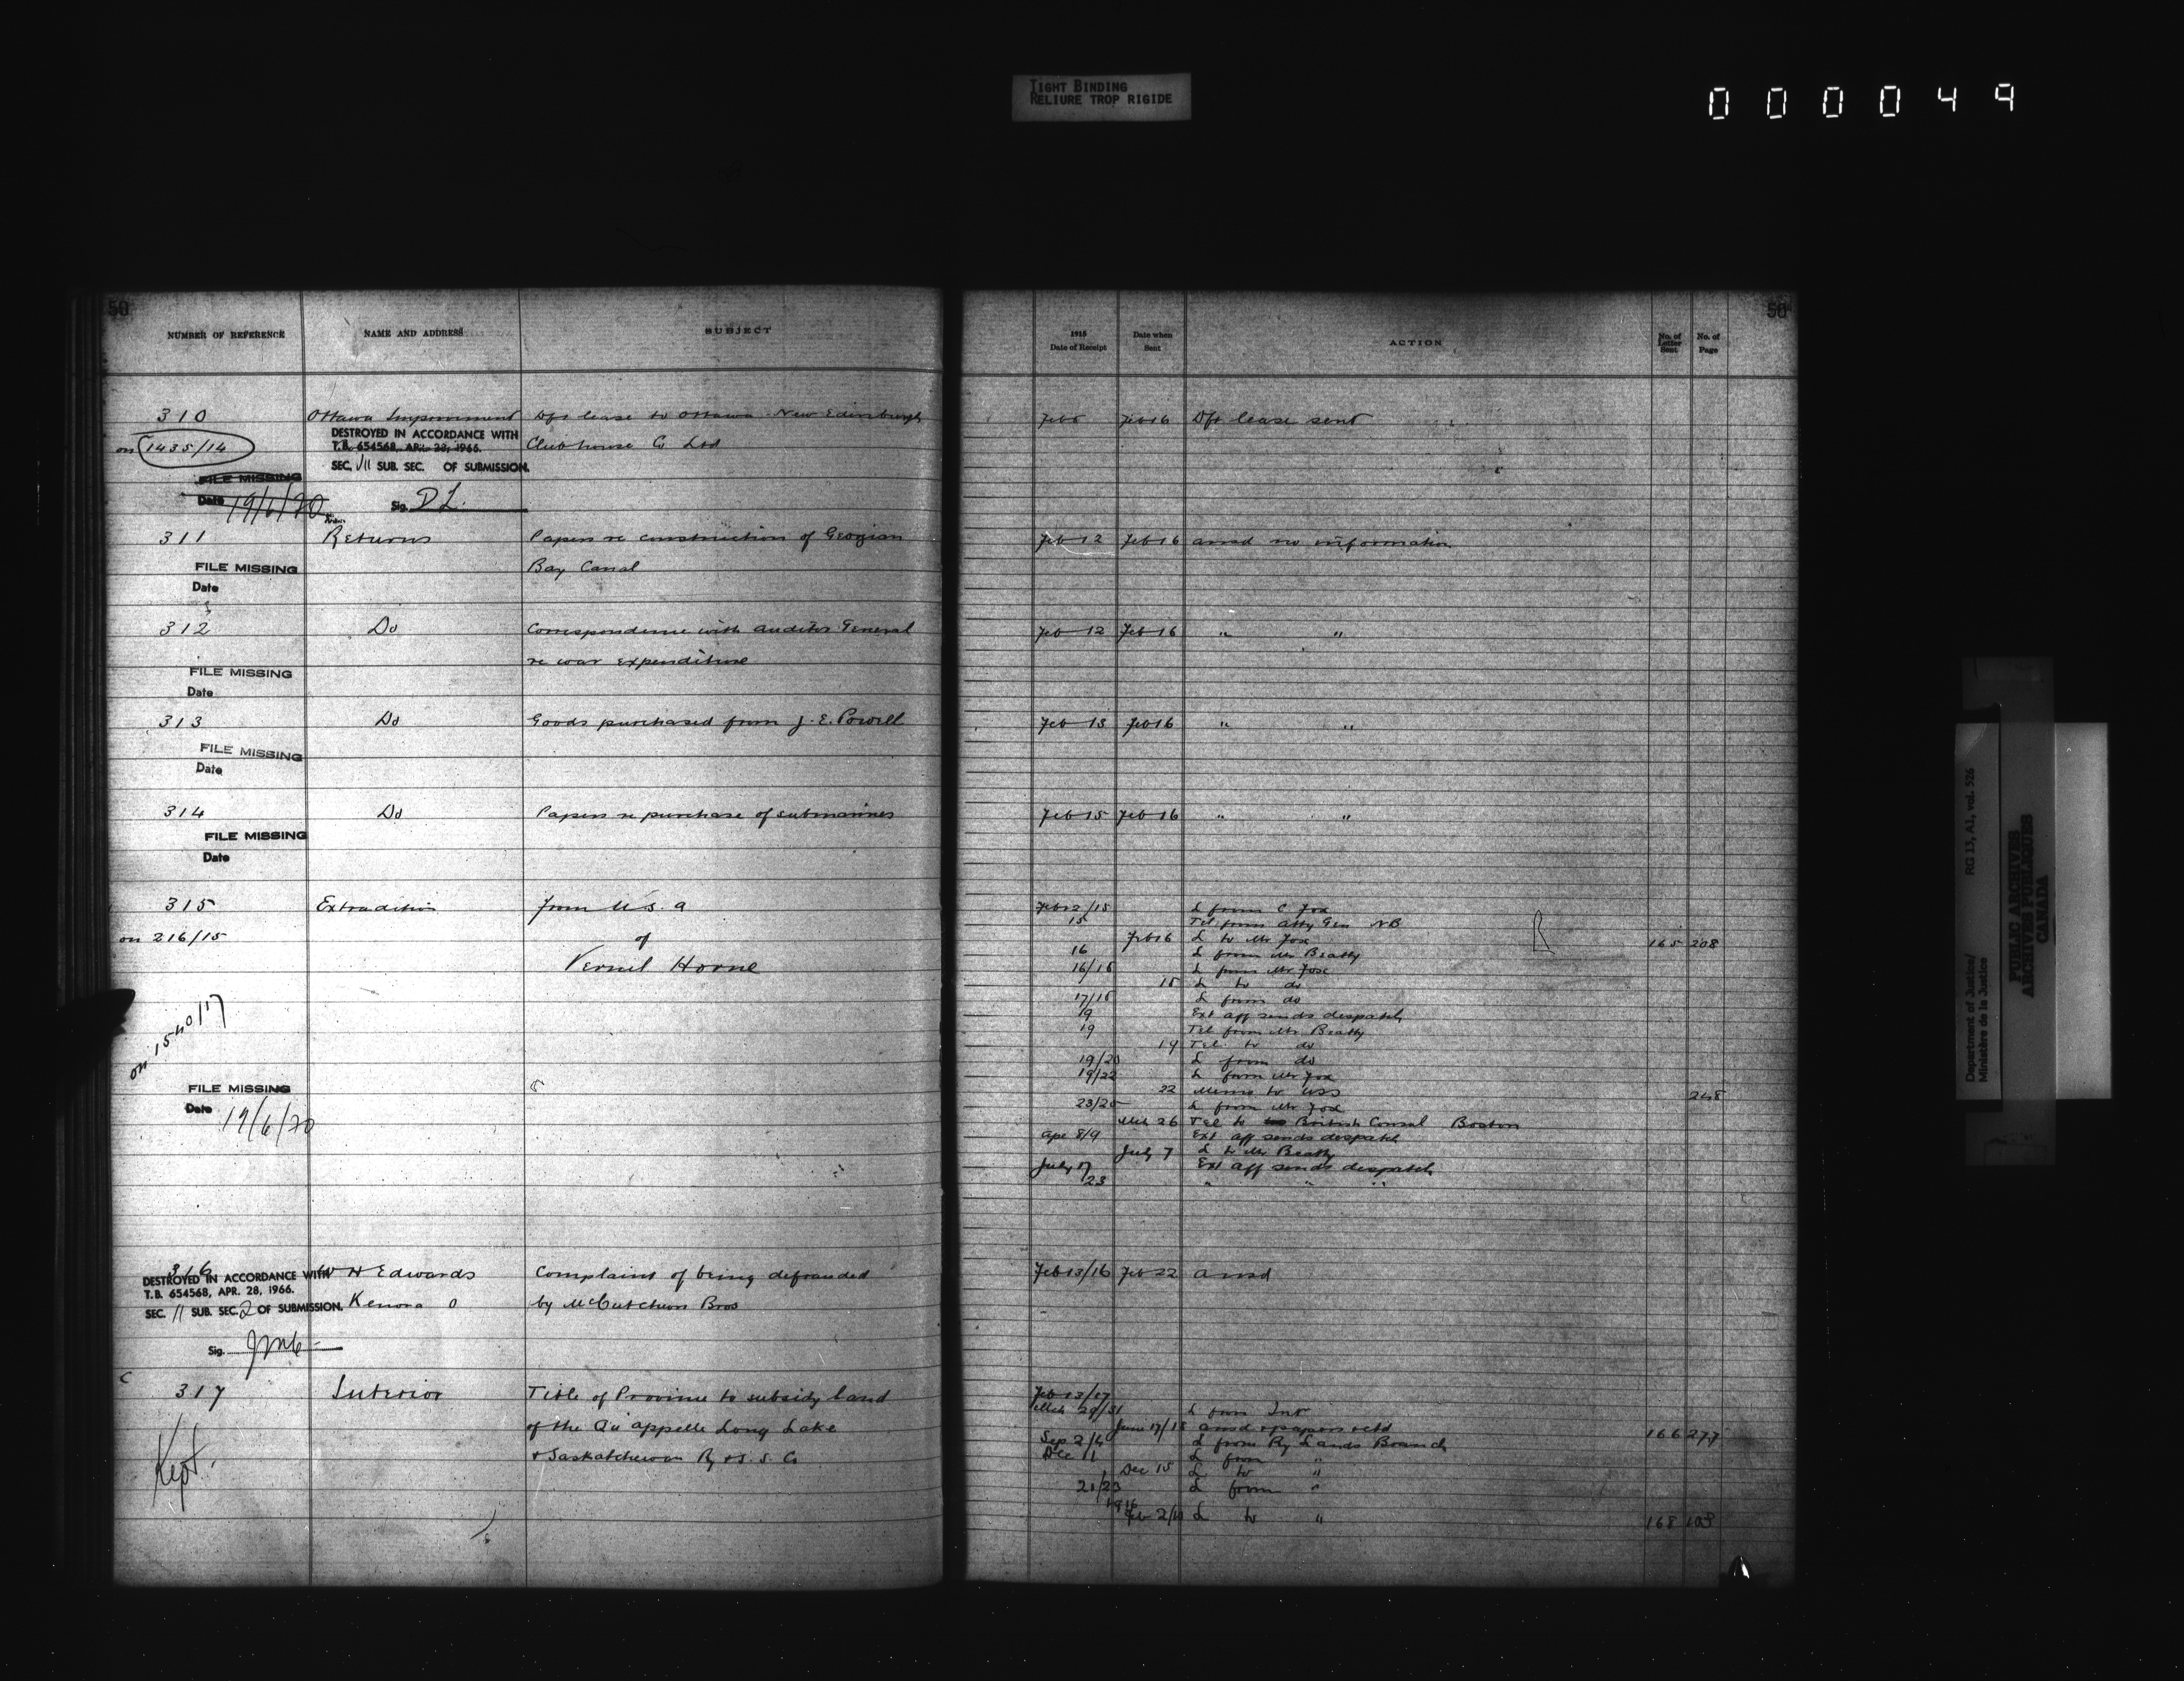 TIGHT BINDING
RELIURE TROP RIGIDE
000049
50
NUMBER OF REFERENCE NAME AND ADDRESS SUBJECT
310 Ottawa Improvement Dft lease to Ottawa New Edinburgh
on 1435/14 DESTROYED IN ACCORDANCE WITH Clubhouse Co Ltd
T.B. 654568, APR. 28, 1966.
SEC. VII SUB. SEC. OF SUBMISSION.
FILE MISSING
Date 19/6/70 Sig. D L.
311 Returns Papers re construction of Georgian
FILE MISSING Bay Canal
Date
312 Do Correspondence with Auditor General
re war expenditure
FILE MISSING
Date
313 Do Goods purchased from J. E. Powell
FILE MISSING
Date
314 Do Papers re purchase of submarines
FILE MISSING
Date
315 Extradition from U.S.a
on 216/15 of
Vernil Horne
on 1540/17
FILE MISSING
Date 19/6/70
316 W H Edwards Complaint of being defrauded
DESTROYED IN ACCORDANCE WITH
T.B. 654568, APR. 28, 1966.
SEC. 11 SUB. SEC. 2 OF SUBMISSION. Kenora O by McCutcheon Bros
Sig.
c
317 Interior Title of Province to subsidy land
of the Qu'appelle Long Lake
Kept. & Saskatchewan Ry & S. S. Co
50
1915 Date of Receipt Date when Sent ACTION No. of Letter Sent No. of Page
Feb 6 Feb 16 Dft lease sent
Feb 12 Feb 16 ansd no information
Feb 12 Feb 16 " "
Feb 13 Feb 16 " "
Feb 15 Feb 16 " "
Feb 12/15 L from C Fox
15 Tel from Atty Gen NB R
Feb 16 L to Mr Fox 165 208
16 L from Mr Beatty
16/16 L from Mr Fox
18 L to do
17/18 L from do
19 Ext aff sends despatch
19 Tel from Mr Beatty
19 Tel. to do
19/20 L from do
19/22 L from Mr Fox
22 Memo to USS 248
23/25 L from Mr Fox
Mch 26 Tel to British Consul Boston
Apr 8/9 Ext aff sends despatch
July 7 L to Mr Beatty
July 17 Ext aff sends despatch
23 " " "
Feb 13/16 Feb 22 ansd
Feb 13/17
Mch 29/31 L from Int
June 17/15 ansd & papers retd 166 277
Sep 2/4 L from Ry Lands Branch
Dec 11 L from "
Dec 15 L to "
21/23 L from "
1916
Feb 2/10 L to " 168 103
Department of Justice/ RG 13, A1, vol. 526
Ministère de la Justice
PUBLIC ARCHIVES
ARCHIVES PUBLIQUES
CANADA